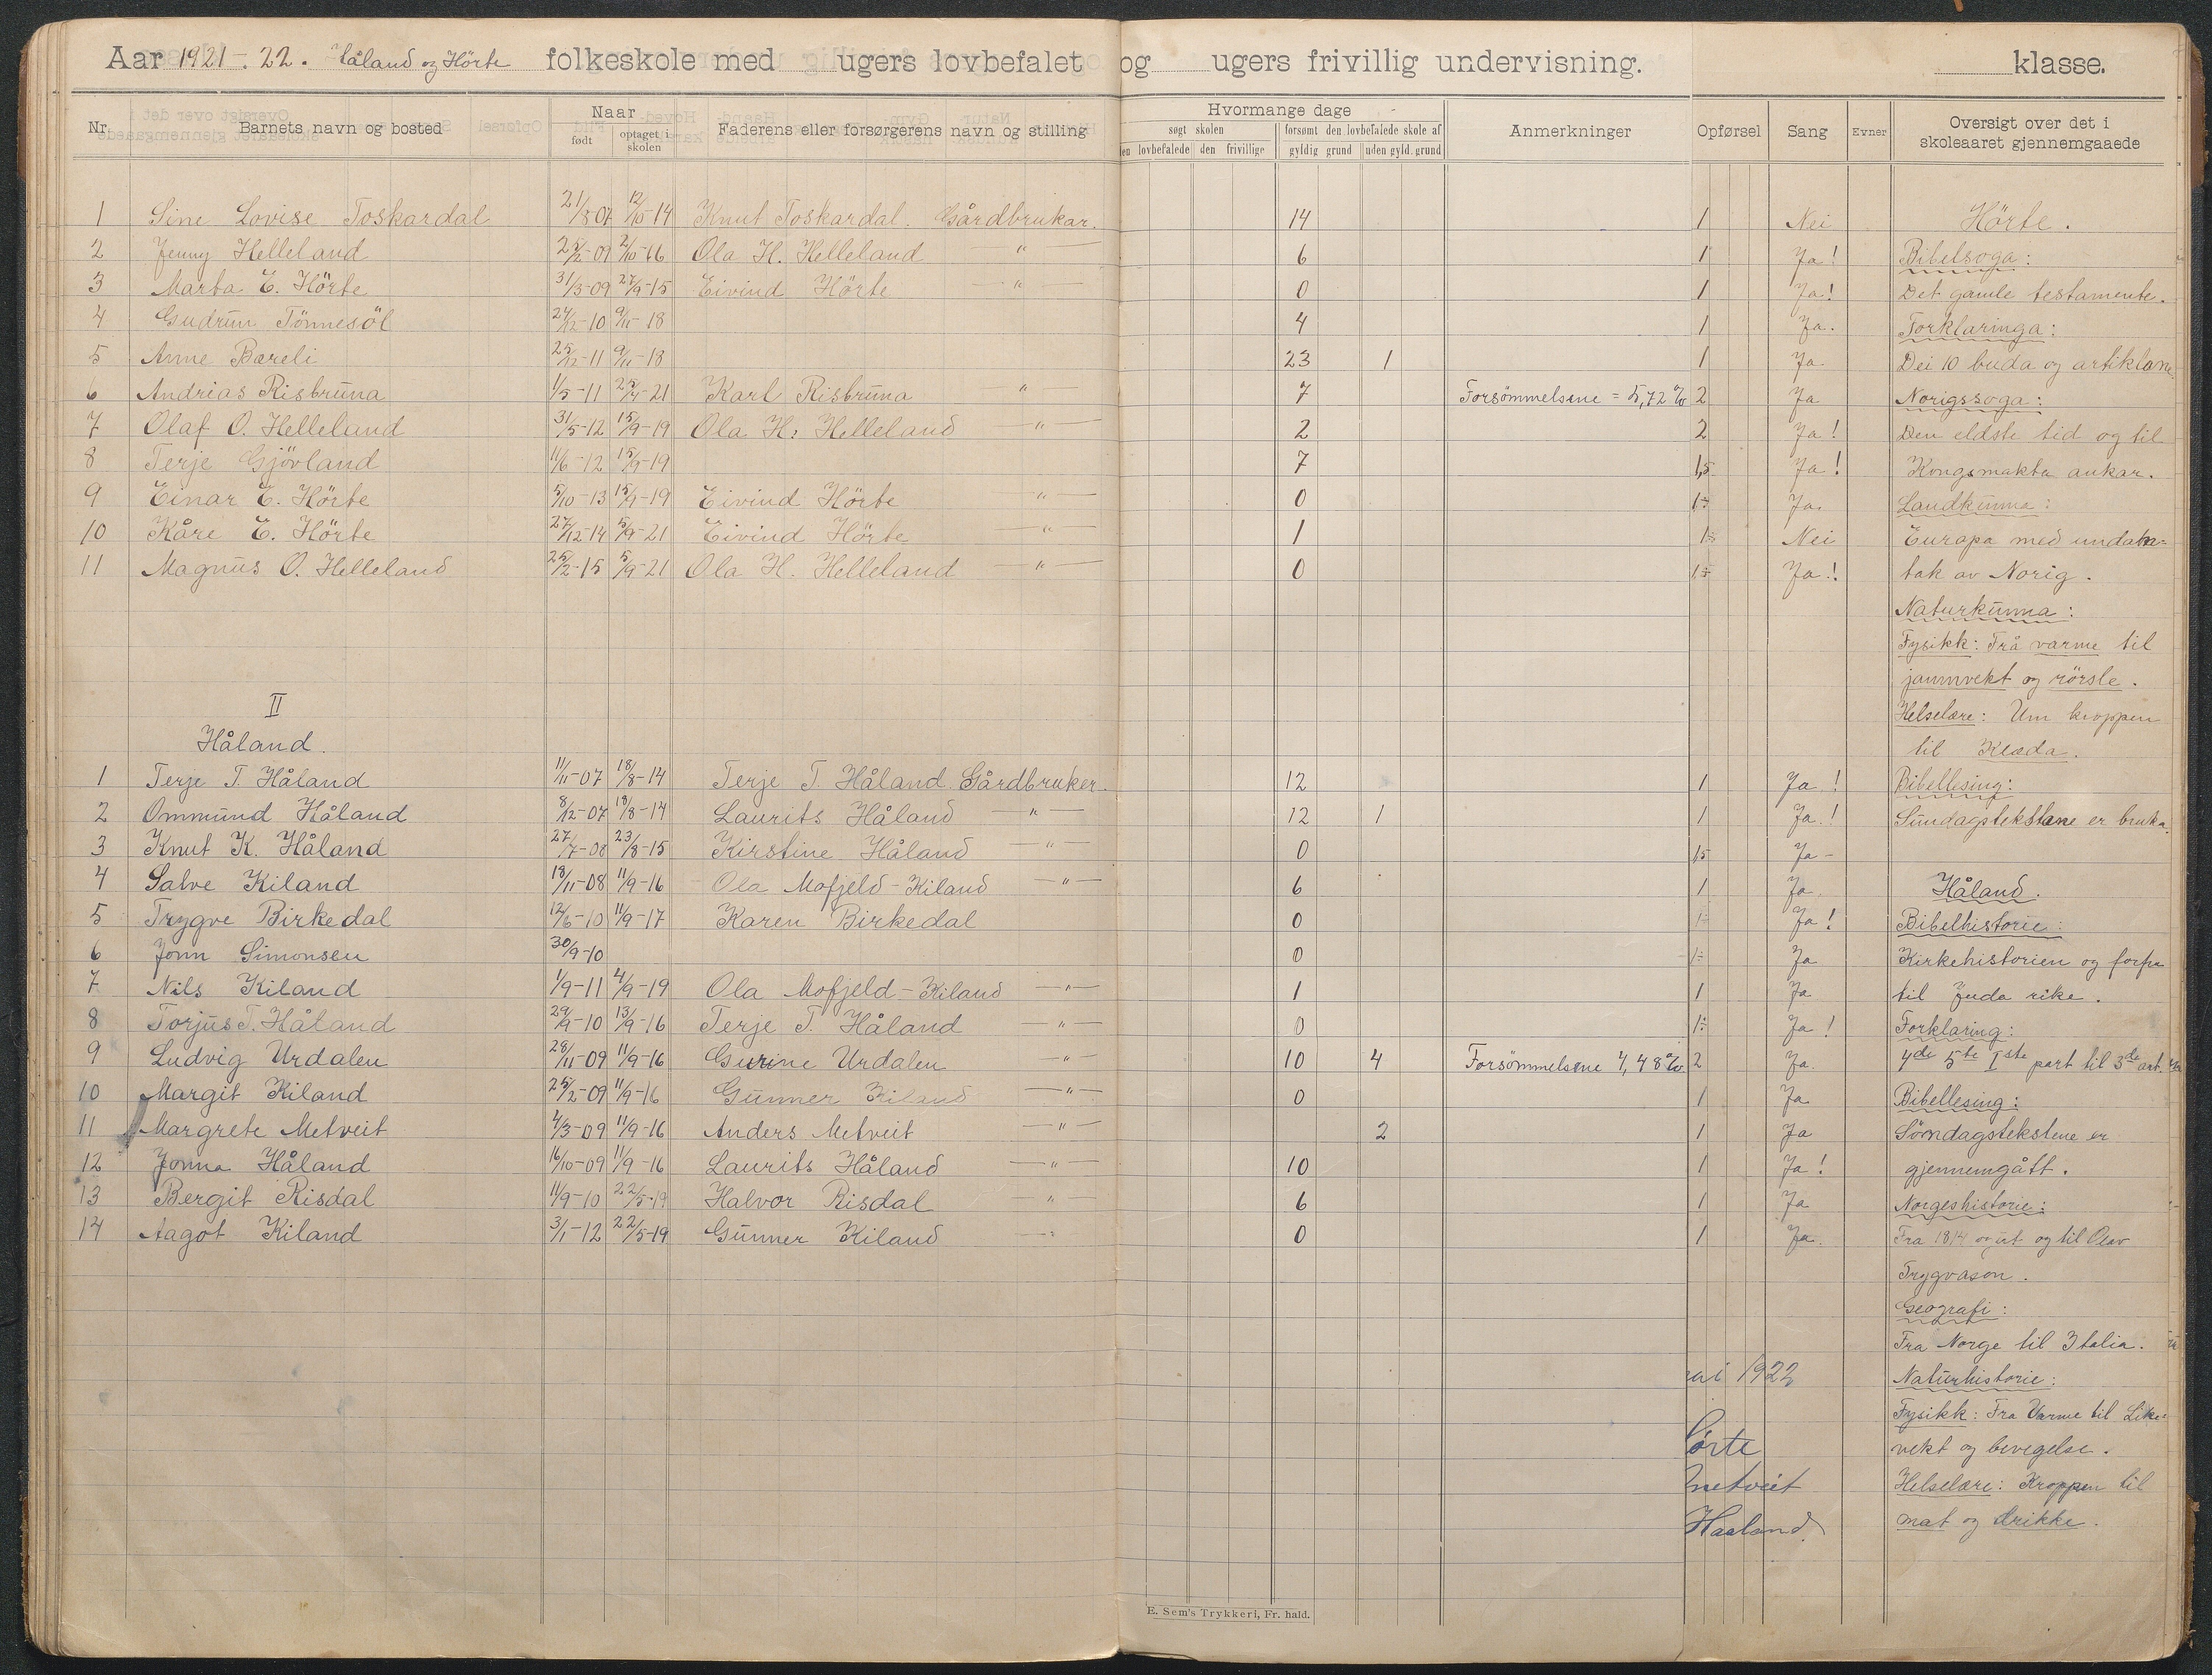 Aar 1921-22. Håland og Hörte folkeskole med ugers lovbefalet og ugers frivillig undervisning. klasse.
Nr. Barnets navn og bosted Naar født optaget i skolen Faderens eller forsørgerens navn og stilling Hvormange dage søgt skolen den lovbefalede den frivillige forsømt den lovbefalede skole af gyldig grund uden gyld. grund Anmerkninger Opførsel Sang Evner Oversigt over det i skoleaaret gjennemgaaede
1 Sine Lovise Toskardal 21/8 07 12/10-14 Knut Toskardal. Gårdbrukar. 14 1 Nei Hörte.
2 Jenny Helleland 25/2-09 2/10-16 Ola H. Helleland " 6 1 Ja! Bibelsoga:
3 Marta E. Hörte 31/3-09 27/9-15 Eivind Hörte " 0 1 Ja! Det gamle testamente.
4 Gudrun Tönnesöl 24/12-10 9/11-18 4 1 Ja. Forklaringa:
5 Anne Bareli 25/12-11 9/11-18 23 1 1 Ja Dei 10 buda og artiklane
6 Andrias Risbruna 1/5-11 -21 Karl Risbruna " 7 Forsömmelsene = 5,72 % 2 Ja Norigssoga:
7 Olaf O. Helleland 31/5-12 15/9-19 Ola H. Helleland " 2 2 Ja! Den eldste tid og til
8 Terje Gjövland 11/6-12 15/9-19 7 1,5 Ja! Kongsmakta aukar.
9 Einar E. Hörte 5/10-13 15/9-19 Eivind Hörte " 0 1÷ Ja. Landkunna:
10 Kåre E. Hörte 27/12-14 5/9-21 Eivind Hörte " 1 1÷ Nei Europa med undan=
11 Magnus O. Helleland 25/2-15 5/9-21 Ola H. Helleland " 0 1÷ Ja! tak av Norig.
Naturkunna:
Fysikk: Frå varme til
jamnvekt og rörsle.
II Helselære: Um kroppen
Håland. til Klæda.
1 Terje T. Håland 11/11-07 18/8-14 Terje T. Håland. Gårdbruker. 12 1 Ja! Bibellesing:
2 Ommund Håland 8/12-07 18/8-14 Laurits Håland " 12 1 1 Ja! Sundagstekstane er bruka.
3 Knut K. Håland 27/7-08 23/8-15 Kirstine Håland " 0 1,5 Ja -
4 Salve Kiland 13/11-08 11/9-16 Ola Mofjeld-Kiland " 6 1 Ja. Håland.
5 Trygve Birkedal 12/6-10 11/9-17 Karen Birkedal 0 1÷ Ja! Bibelhistorie:
6 Jonn Simonsen 30/9-10 0 1÷ Ja Kirkehistorien og forfra
7 Nils Kiland 1/9-11 4/9-19 Ola Mofjeld-Kiland " 1 1 Ja til Juda rike.
8 Torjus T. Håland 29/9-10 13/9-16 Terje T. Håland " 0 1÷ Ja! Forklaring:
9 Ludvig Urdalen 28/11-09 11/9-16 Gurine Urdalen " 10 4 Forsömmelsene 4,48% 2 Ja. 4de 5te 1ste part til 3de art.
10 Margit Kiland 25/2-09 11/9-16 Gunner Kiland " 0 1 Ja Bibellesing:
11 Margrete Metveit 4/3-09 11/9-16 Anders Metveit " 2 1 Ja Söndagstekstene er
12 Jonna Håland 16/10-09 11/9-16 Laurits Håland " 10 1 Ja! gjennemgått.
13 Bergit Risdal 11/9-10 22/5-19 Halvor Risdal " 6 1 Ja Norgeshistorie:
14 Aagot Kiland 3/1-12 22/5-19 Gunner Kiland " 0 1 Ja. Fra 1814 og ut og til Olav
Trygvason.
Geografi:
Fra Norge til Italia.
ai 1922 Naturhistorie:
Fysikk: Fra Varme til Like=
örte vekt og bevegelse.
metveit Helselære: Kroppen til
Haaland mat og drikke.
E. Sem's Trykkeri, Fr. hald.